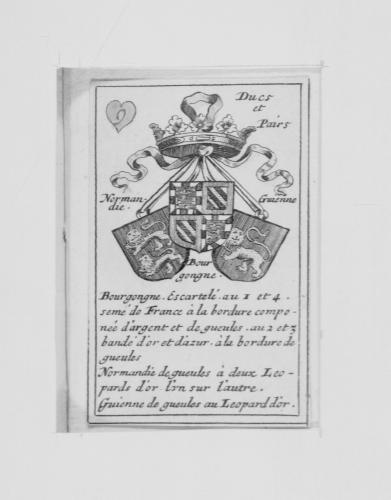 9
Ducs
et
Pairs
Norman-
die.
Guienne
Bour
gongne.
Bourgongne. Escartelé. au 1 et 4.
semé de France à la bordure compo-
neé d'argent et de gueules. au 2 et 3
bandé d'or et d'azur. à la bordure de
gueules
Normandie de gueules à deux Leo-
pards d'or l'vn sur l'autre.
Guienne de gueules au Leopard d'or.